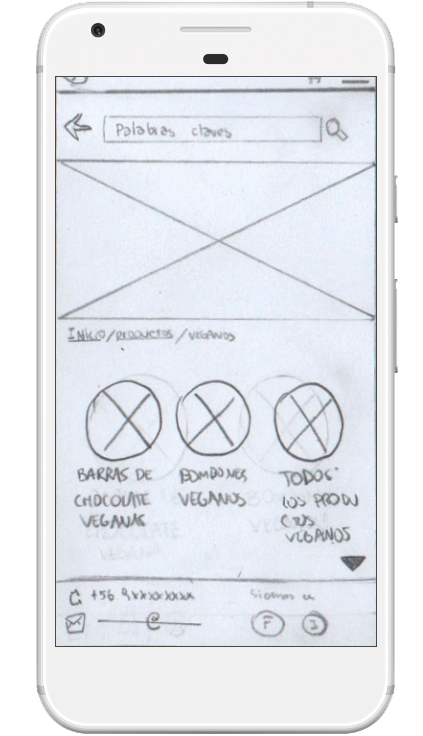 Palabras claves
Inicio/productos/veganos
BARRAS DE
CHOCOLATE
VEGANAS
BOMBONES
VEGANOS
TODOS
LOS PRODU
CTOS
VEGANOS
+56 9xxxxxxxx
@
F
I